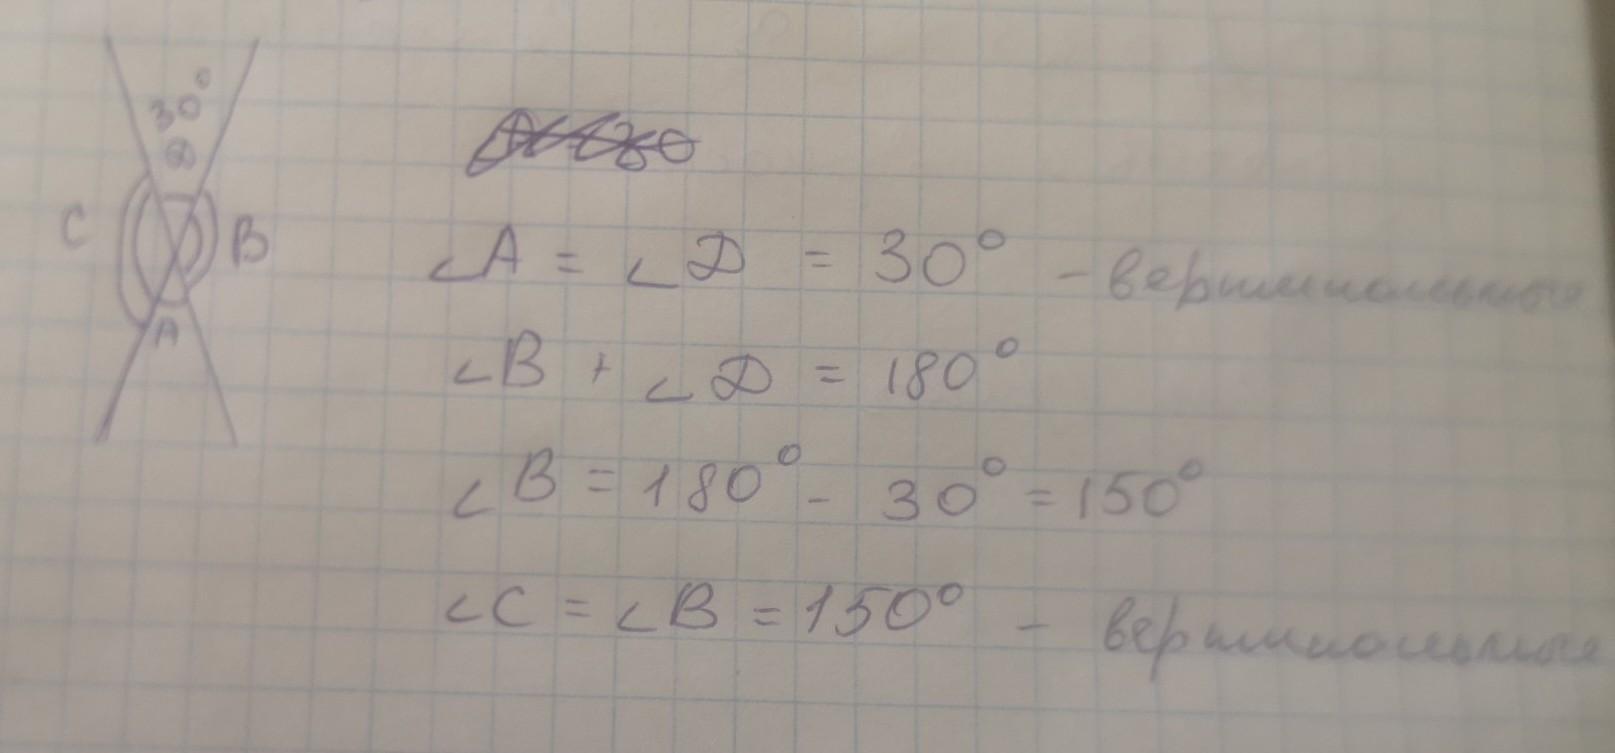 30°
D
C
B
A
∠A = ∠D = 30° - вертикальные
∠B + ∠D = 180°
∠B = 180° - 30° = 150°
∠C = ∠B = 150° - вертикальные